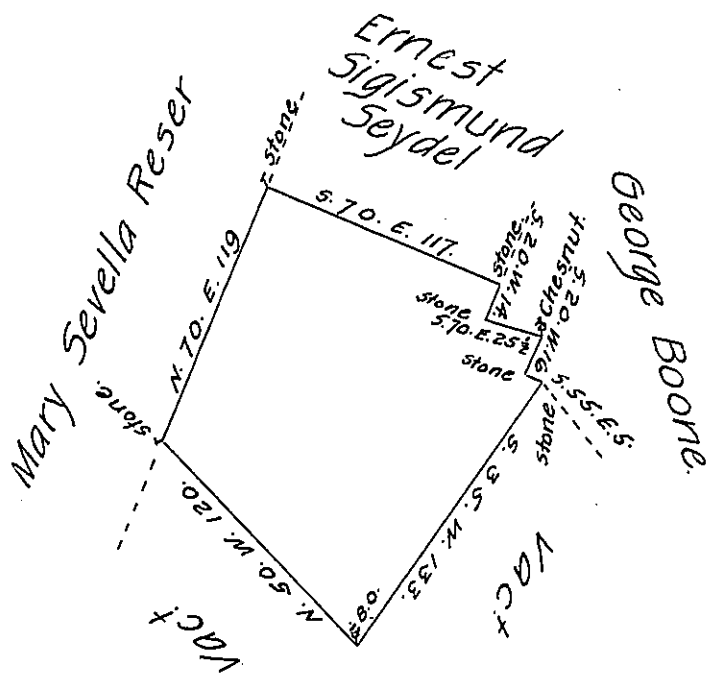 Ernest
Sigismund
Seydel
Mary Sevella Reser
George Boone.
stone.
S. 70. E. 117.
N. 70. E. 119
stone.
S. 20. W. 14.
stone
S. 70. E. 25½
Chesnut.
S. 20. W. 16
stone
S. 55. E. 5.
stone
S. 35. W. 133.
stone.
N. 50. W. 120.
Vac.t
Vac.t